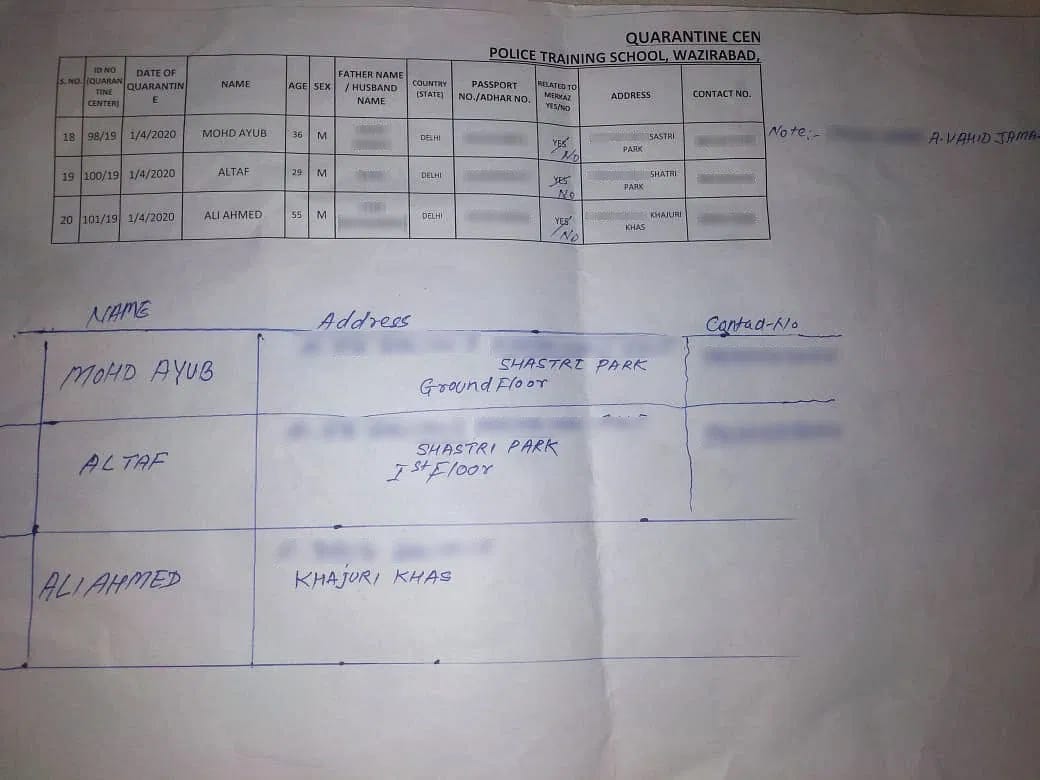 QUARANTINE CEN
POLICE TRAINING SCHOOL, WAZIRABAD,
S. NO. ID NO (QUARAN TINE CENTER) DATE OF QUARANTIN E NAME AGE SEX FATHER NAME / HUSBAND NAME COUNTRY (STATE) PASSPORT NO./ADHAR NO. RELATED TO MERKAZ YES/NO ADDRESS CONTACT NO.
18 98/19 1/4/2020 MOHD AYUB 36 M DELHI YES/No SASTRI PARK
Note:- A.VAHID JAMA
19 100/19 1/4/2020 ALTAF 29 M DELHI YES No SHATRI PARK
20 101/19 1/4/2020 ALI AHMED 55 M DELHI YES/No KHAJURI KHAS
NAME Address Contad-No
MOHD AYUB SHASTRI PARK
Ground Floor
ALTAF SHASTRI PARK
Ist Floor
ALI AHMED KHAJURI KHAS